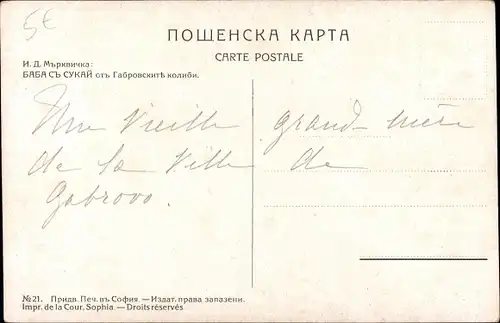 5€
ПОЩЕНСКА КАРТА
CARTE POSTALE
И. Д. Мърквичка:
БАБА СЪ СУКАЙ отъ Габровскитѣ колиби.
Une Vieille grand-mère
de la Ville de
Gabrovo.
№21. Придв. Печ. въ София. — Издат. права запазени.
Impr. de la Cour, Sophia. — Droits réservés